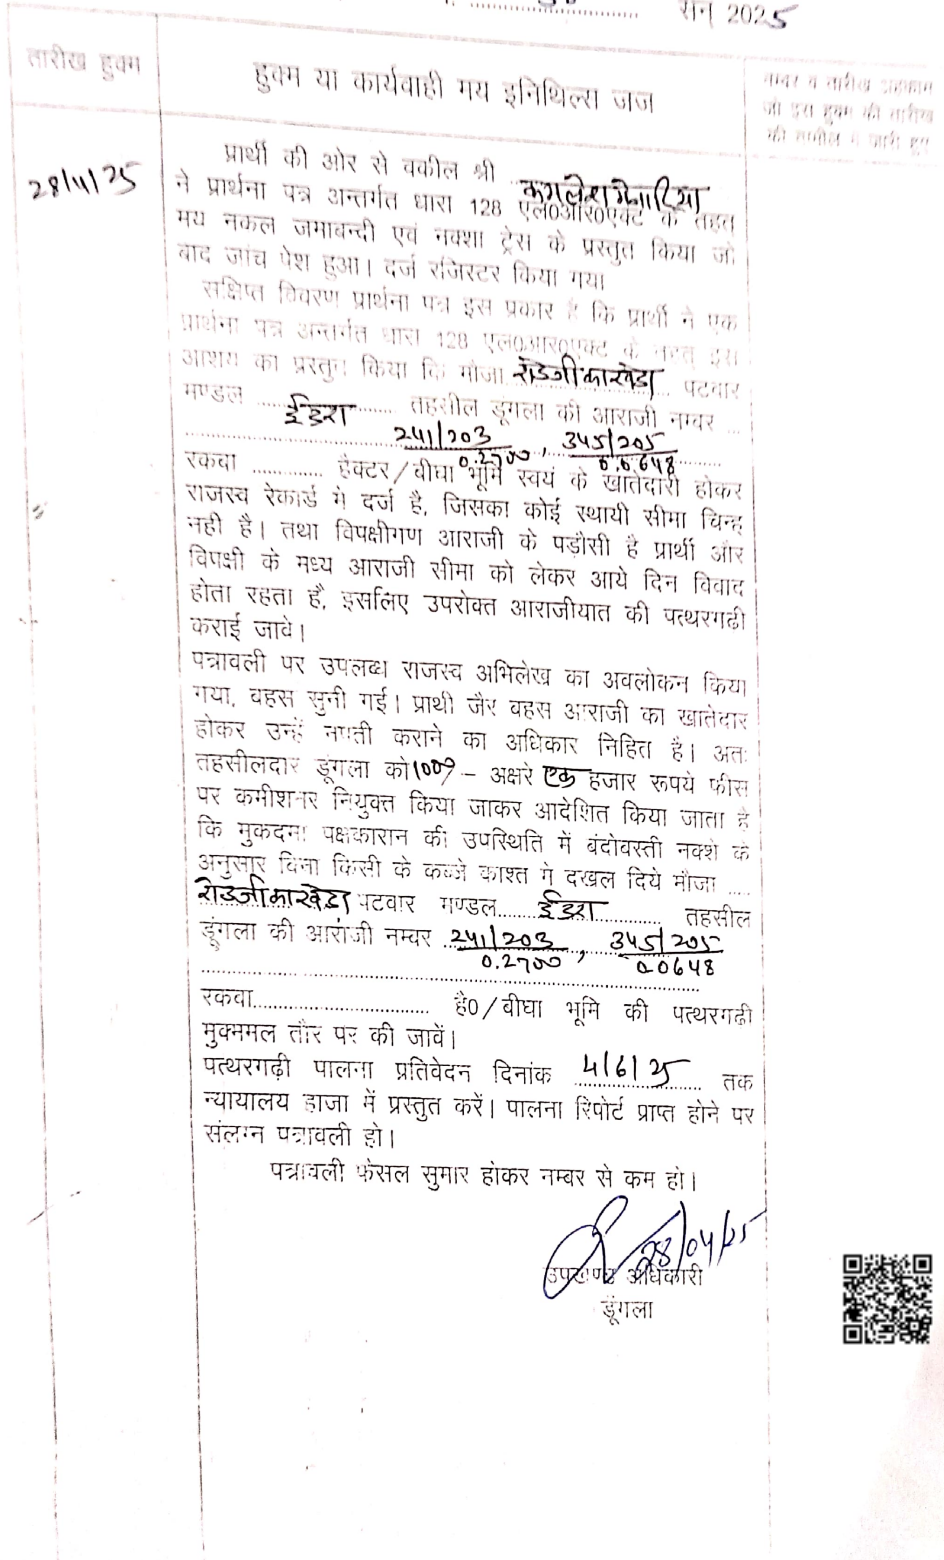 सन् 2025
तारीख हुक्म
हुक्म या कार्यवाही मय इनिथिल्स जज
नम्बर व तारीख अहकाम
जो इस हुक्म की तारीख
की तामील में जारी हुए
28/4/25
प्रार्थी की ओर से वकील श्री कमलेश मेनारिया
ने प्रार्थना पत्र अन्तर्गत धारा 128 एल0आर0एक्ट के तहत
मय नकल जमाबन्दी एवं नक्शा ट्रेस के प्रस्तुत किया जो
बाद जांच पेश हुआ। दर्ज रजिस्टर किया गया
सक्षिप्त विवरण प्रार्थना पत्र इस प्रकार है कि प्रार्थी ने एक
प्रार्थना पत्र अन्तर्गत धारा 128 एल0आर0एक्ट के तहत इस
आशय का प्रस्तुत किया कि मौजा रोडजी का खेडा पटवार
मण्डल ....... ईडरा ....... तहसील डूंगला की आराजी नम्बर ...
241/203 , 345/205
0.2700 0.0648
रकवा ............. हैक्टर/बीघा भूमि स्वयं के खातेदारी होकर
राजस्व रेकार्ड में दर्ज है, जिसका कोई स्थायी सीमा चिन्ह
नही है। तथा विपक्षीगण आराजी के पड़ौसी है प्रार्थी और
विपक्षी के मध्य आराजी सीमा को लेकर आये दिन विवाद
होता रहता है, इसलिए उपरोक्त आराजीयात की पत्थरगढी
कराई जावे।
पत्रावली पर उपलब्ध राजस्व अभिलेख का अवलोकन किया
गया, वहस सुनी गई। प्राथी जैर वहस आराजी का खातेदार
होकर उन्हें नपती कराने का अधिकार निहित है। अतः
तहसीलदार डूंगला को 1000/- अक्षरे एक हजार रूपये फीस
पर कमीशनर नियुक्त किया जाकर आदेशित किया जाता है
कि मुकदमा पक्षकारान की उपस्थिति में बंदोवस्ती नक्शे के
अनुसार विना किसी के कब्जे काश्त मे दखल दिये मौजा ....
रोडजी का खेडा पटवार मण्डल....... ईडरा ............ तहसील
डूंगला की आराजी नम्बर 241/203 , 345/205
0.2700 0.0648
रकवा............................... है0/बीघा भूमि की पत्थरगढी
मुक्ममल तौर पर की जावें।
पत्थरगढ़ी पालना प्रतिवेदन दिनांक 4/6/25 तक
न्यायालय हाजा में प्रस्तुत करें। पालना रिपोर्ट प्राप्त होने पर
संलग्न पत्रावली हो।
पत्रावली फैसल सुमार होकर नम्बर से कम हो।
28/04/25
उपखण्ड अधिकारी
डूंगला